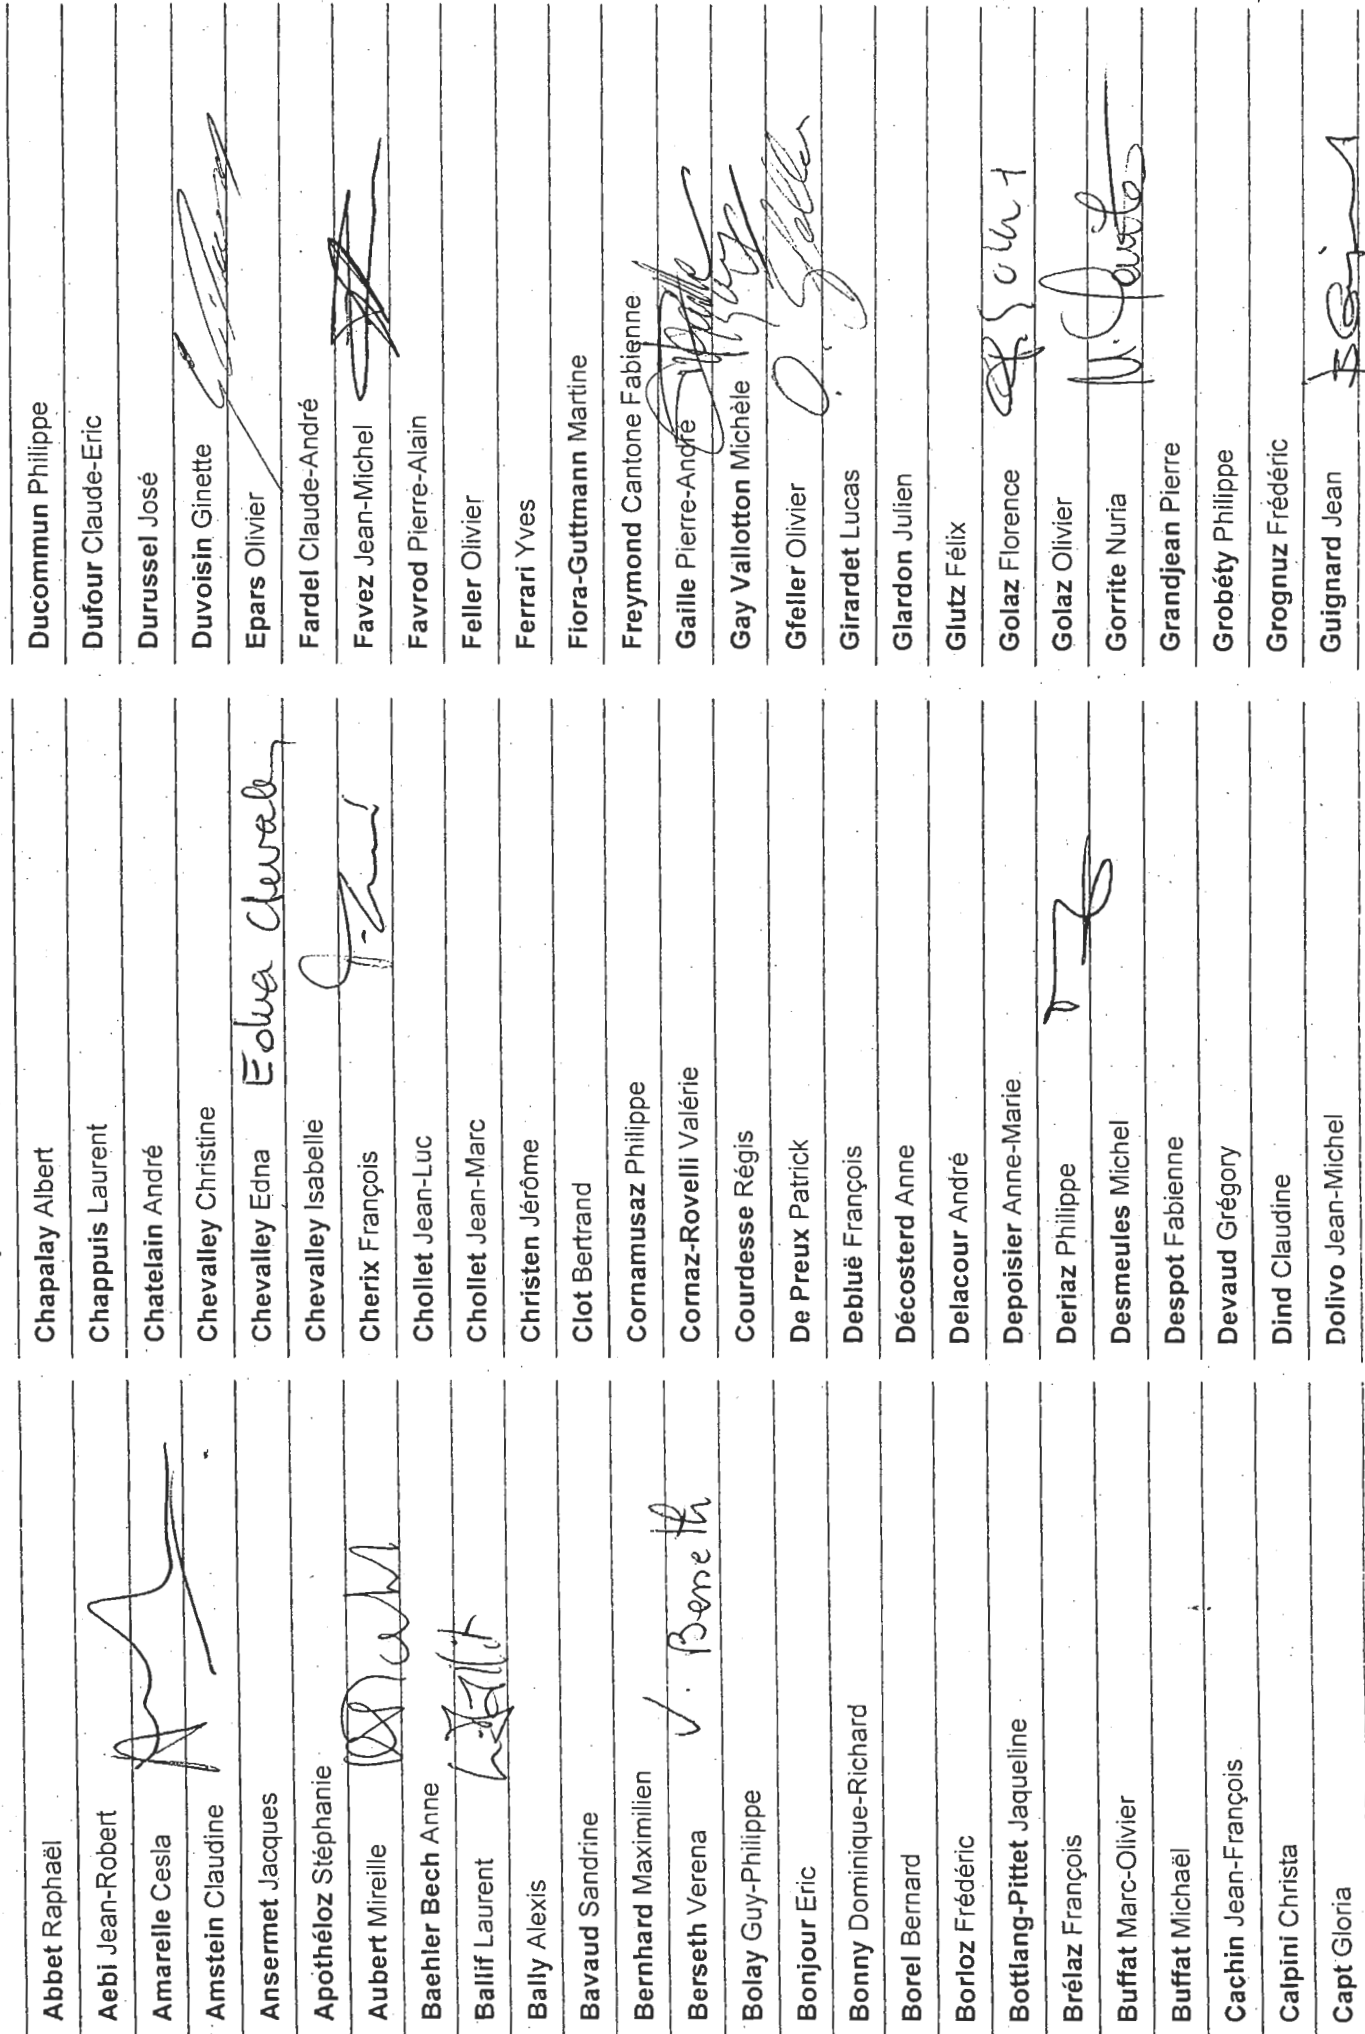 Abbet Raphaël
Aebi Jean-Robert
Amarelle Cesla
Amstein Claudine
Ansermet Jacques
Apothéloz Stéphanie
Aubert Mireille
Baehler Bech Anne
Ballif Laurent
Bally Alexis
Bavaud Sandrine
Bernhard Maximilien
Berseth Verena V. Berseth
Bolay Guy-Philippe
Bonjour Eric
Bonny Dominique-Richard
Borel Bernard
Borloz Frédéric
Bottlang-Pittet Jaqueline
Brélaz François
Buffat Marc-Olivier
Buffat Michaël
Cachin Jean-François
Calpini Christa
Capt Gloria
Chapalay Albert
Chappuis Laurent
Chatelain André
Chevalley Christine
Chevalley Edna Edna Chevalley
Chevalley Isabelle
Cherix François
Chollet Jean-Luc
Chollet Jean-Marc
Christen Jérôme
Clot Bertrand
Cornamusaz Philippe
Cornaz-Rovelli Valérie
Courdesse Régis
De Preux Patrick
Débluë François
Décosterd Anne
Delacour André
Depoisier Anne-Marie
Deriaz Philippe
Desmeules Michel
Despot Fabienne
Devaud Grégory
Dind Claudine
Dolivo Jean-Michel
Ducommun Philippe
Dufour Claude-Eric
Durussel José
Duvoisin Ginette
Epars Olivier
Fardel Claude-André
Favez Jean-Michel
Favrod Pierre-Alain
Feller Olivier
Ferrari Yves
Fiora-Guttmann Martine
Freymond Cantone Fabienne
Gaille Pierre-André
Gay Vallotton Michèle
Gfeller Olivier O. Gfeller
Girardet Lucas
Glardon Julien
Glutz Félix
Golaz Florence
Golaz Olivier
Gorrite Nuria N. Gorrite
Grandjean Pierre
Grobéty Philippe
Grognuz Frédéric
Guignard Jean